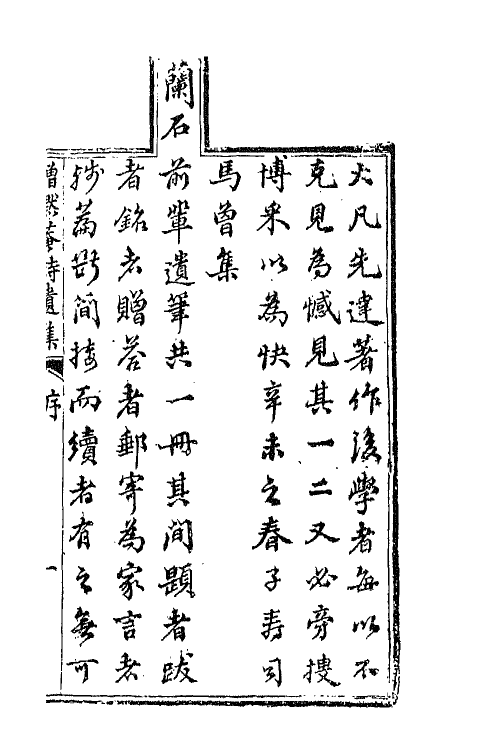 大凡先達著作後學者每以不
克見為憾見其一二又必旁搜
博采以為快辛未之春子壽司
馬曾集
蘭石前輩遺筆共一冊其間題者跋
者銘者贈答者郵寄為家言者
殘篇斷簡接而續者有之無可
增默菴詩遺集 序 一